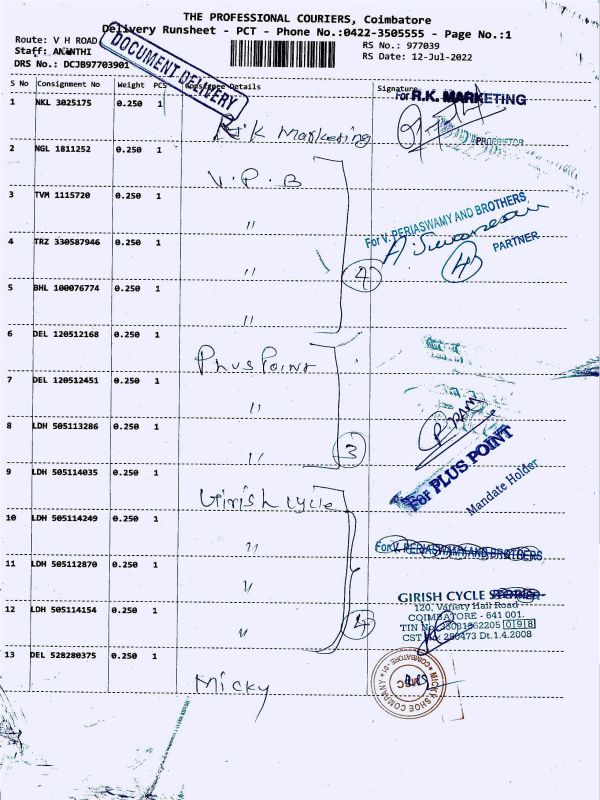 THE PROFESSIONAL COURIERS, Coimbatore
Delivery Runsheet - PCT - Phone No.:0422-3505555 - Page No.:1
Route: V H ROAD
RS No.: 977039
Staff: ANANTHI
RS Date: 12-Jul-2022
DRS No.: DCJB97703901
DOCUMENT DELIVERY
S No Consignment No Weight PCS Consignee Details Signature
1 NKL 3025175 0.250 1 R.K Marketing
For R.K. MARKETING
PROPRIETOR
2 NGL 1811252 0.250 1 V.P.B
3 TVM 1115720 0.250 1 "
For V. PERIASWAMY AND BROTHERS
PARTNER
4
4 TRZ 330587946 0.250 1 "
4
5 BHL 100076774 0.250 1 "
6 DEL 120512168 0.250 1 Plus Point
7 DEL 120512451 0.250 1 "
8 LDH 505113286 0.250 1 "
3
For PLUS POINT
Mandate Holder
9 LDH 505114035 0.250 1 Girish Cycle
10 LDH 505114249 0.250 1 "
For V. PERIASWAMY AND BROTHERS
11 LDH 505112870 0.250 1 "
GIRISH CYCLE
120, Variety Hall Road
COIMBATORE - 641 001.
12 LDH 505114154 0.250 1 "
4
TIN No. 33081862205 098
CST No. 280473 Dt.1.4.2008
13 DEL 528280375 0.250 1 Micky
MICKY SHOE COMPANY
COIMBATORE-01
MSC